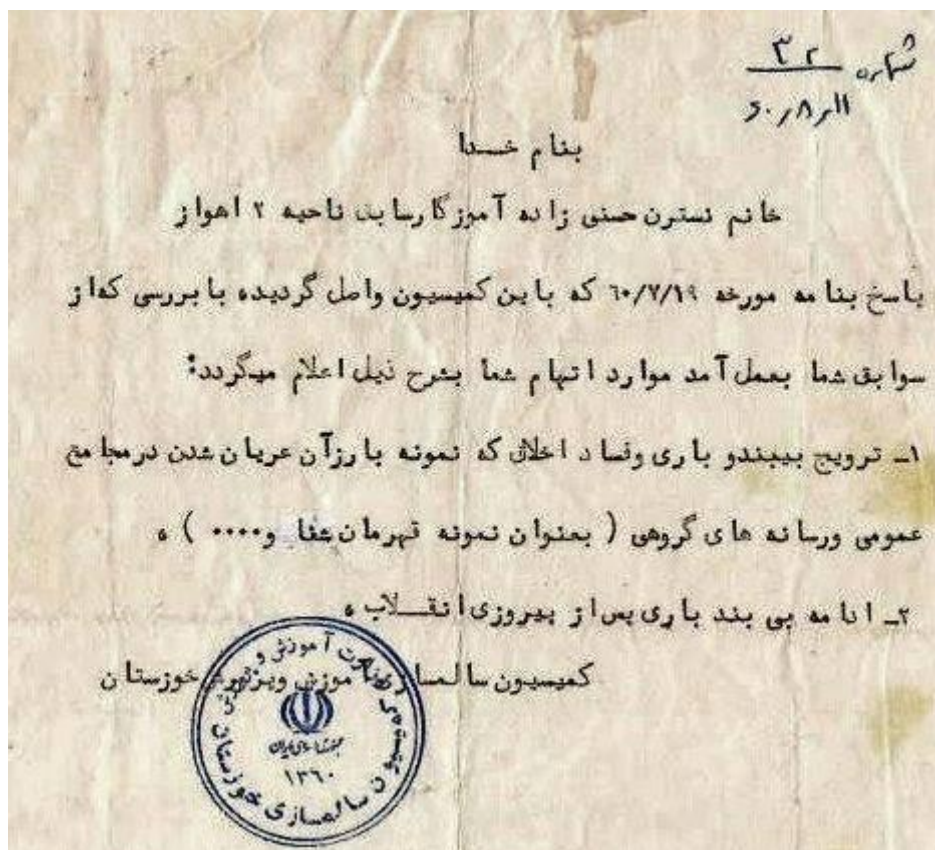 شماره ۳۲
۶۰٫۸٫۱۱
بنام خـدا
خانم نسترن حسنی زاده آموزگار سابق ناحیه ۲ اهواز
پاسخ بنامه مورخه ۶۰/۷/۱۹ که باین کمیسیون واصل گردیده با بررسی که از
سوابق شما بعمل آمد موارد اتهام شما بشرح ذیل اعلام میگردد:
۱ـ ترویج بیبندو باری وفساد اخلاق که نمونه بارزآن عریان شدن درمجامع
عمومی ورسانه های گروهی ( بعنوان نمونه قهرمان شنا و.... ) ه
۲ـ ادامه بی بند باری پس از پیروزی انقـلاب ه
کمیسیون سالمسا موزش وپرورش خوزستان
آموزش و پرورش
جمهوری اسلامی ایران
۱۳۶۰
سالمسازی خوزستان